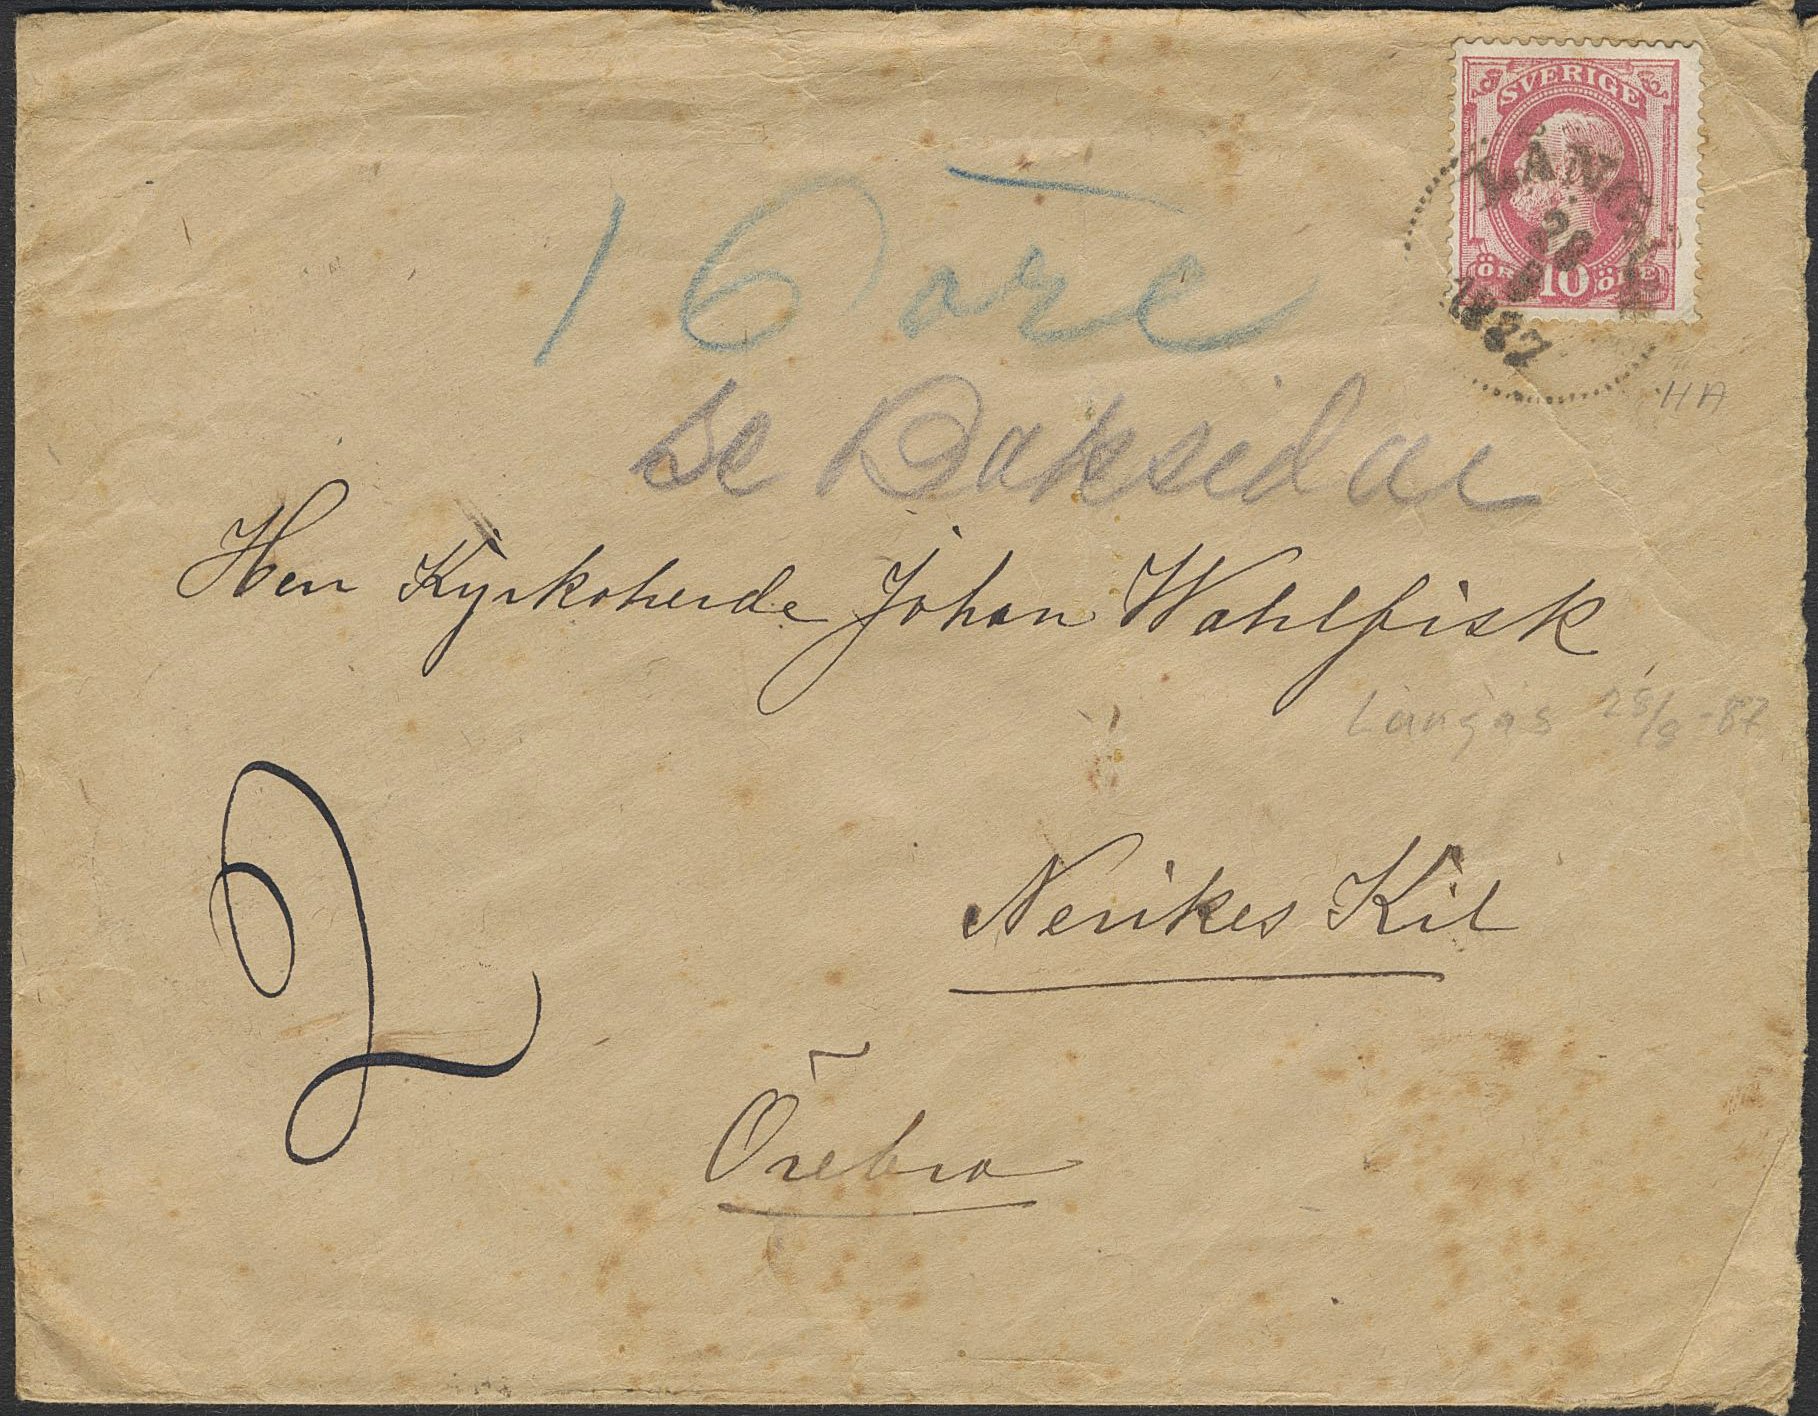 SVERIGE
LÅNGÅS
28
8
1887
ÖRE 10 ÖRE
10 öre
HA
se Baksidan
Herr Kyrkoherde Johan Wahlfisk
Långås 28/8-87
Nerikes Kil
2
Örebro